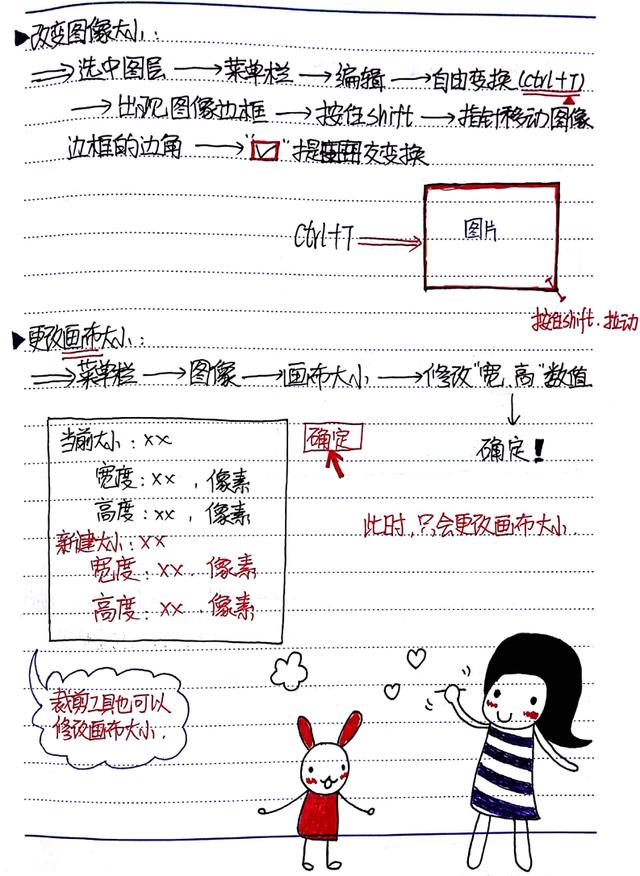 ▶改变图像大小:
⇒选中图层→菜单栏→编辑→自由变换(ctrl+T)
→出现图像边框→按住shift→指针移动图像
边框的边角→"☑"提交变换
ctrl+T
图片
按住shift.拉动
▶更改画布大小:
⇒菜单栏→图像→画布大小→修改"宽,高"数值
↓
确定!
当前大小:xx
宽度:xx,像素
高度:xx,像素
新建大小:xx
宽度:xx.像素
高度:xx.像素
确定
此时,只会更改画布大小.
裁剪工具也可以
修改画布大小.